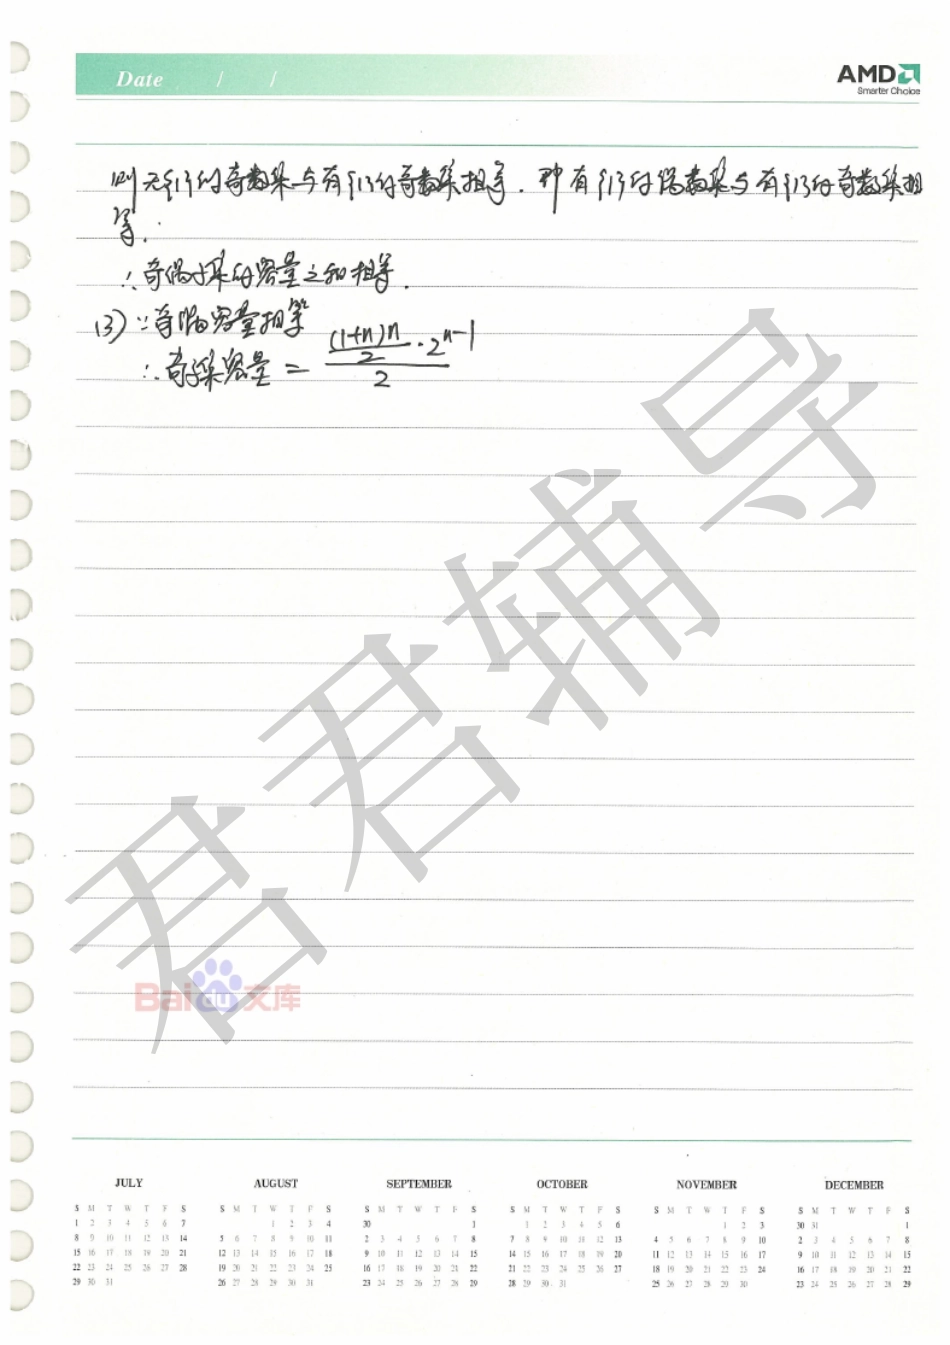 Date / /
AMD
Smarter Choice
则无{1}的奇数集与有{1}的奇数集相等. 即有{1}的偶数集与有{1}的奇数集相
等.
∴奇偶子集的容量之和相等.
(3) ∵奇偶容量相等
∴奇子集容量 = ((1+n)n/2 · 2^{n-1})/2
君君辅导
Baidu文库
JULY AUGUST SEPTEMBER OCTOBER NOVEMBER DECEMBER
S M T W T F S S M T W T F S S M T W T F S S M T W T F S S M T W T F S S M T W T F S
1 2 3 4 5 6 7 1 2 3 4 30 1 1 2 3 4 5 6 1 2 3 30 31 1
8 9 10 11 12 13 14 5 6 7 8 9 10 11 2 3 4 5 6 7 8 7 8 9 10 11 12 13 4 5 6 7 8 9 10 2 3 4 5 6 7 8
15 16 17 18 19 20 21 12 13 14 15 16 17 18 9 10 11 12 13 14 15 14 15 16 17 18 19 20 11 12 13 14 15 16 17 9 10 11 12 13 14 15
22 23 24 25 26 27 28 19 20 21 22 23 24 25 16 17 18 19 20 21 22 21 22 23 24 25 26 27 18 19 20 21 22 23 24 16 17 18 19 20 21 22
29 30 31 26 27 28 29 30 31 23 24 25 26 27 28 29 28 29 30 31 25 26 27 28 29 30 23 24 25 26 27 28 29